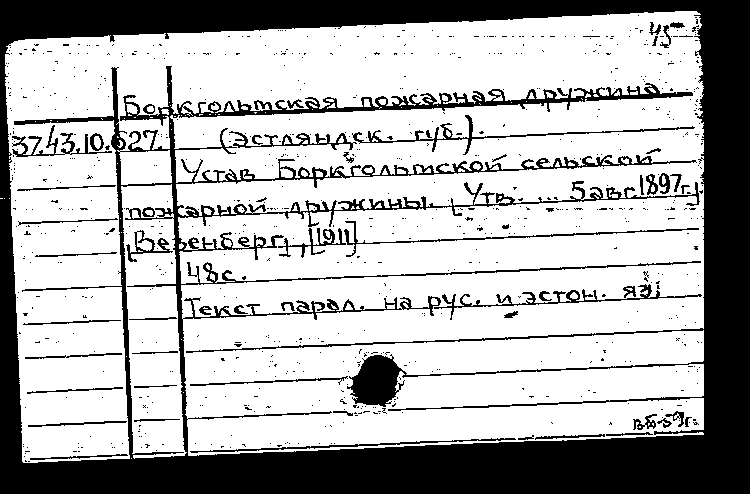 45
Боркгольмская пожарная дружина.
37.43.10.627. (эстляндск. губ.).
Устав Боркгольмской сельской
пожарной дружины. [Утв. ... 5 авг. 1897 г.]
[Везенберг], [1911]
48 с.
Текст парал. на рус. и эстон. яз.